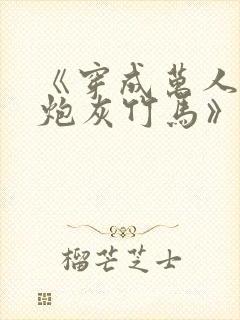 《穿成万人
炮灰竹马》
榴芒芝士